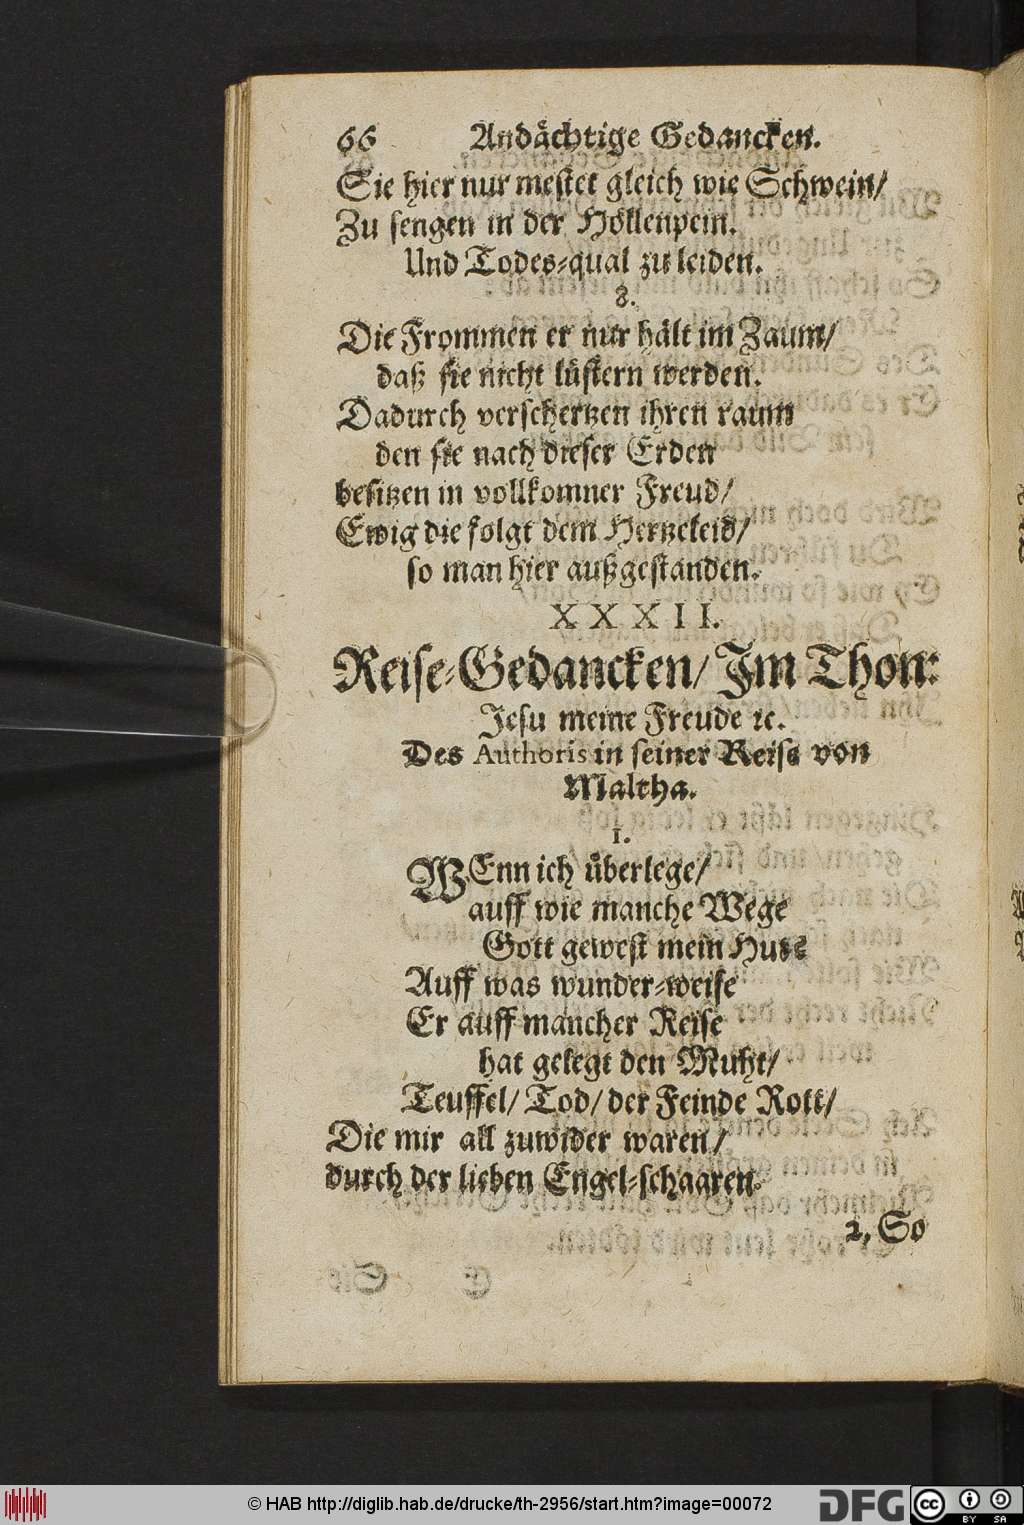 66 Andächtige Gedancken.
Sie hier nur mestet gleich wie Schwein/
Zu sengen in der Höllenpein.
Und Todes-qual zu leiden.
8.
Die Frommen er nur hält im Zaum/
daß sie nicht lüstern werden.
Dadurch verschertzen ihren raum
den sie nach dieser Erden
besitzen in vollkomner Freud/
Ewig die folgt dem Hertzeleid/
so man hier außgestanden.
XXXII.
Reise-Gedancken/ Im Thon:
Jesu meine Freude ꝛc.
Des Authoris in seiner Reise von
Maltha.
1.
WEnn ich überlege/
auff wie manche Wege
Gott gewest mein Hutt
Auff was wunder-weise
Er auff mancher Reise
hat gelegt den Muht/
Teuffel/ Tod/ der Feinde Rott/
Die mir all zuwider waren/
durch der lieben Engel-schaaren.
2, So
© HAB http://diglib.hab.de/drucke/th-2956/start.htm?image=00072
DFG
cc
BY SA